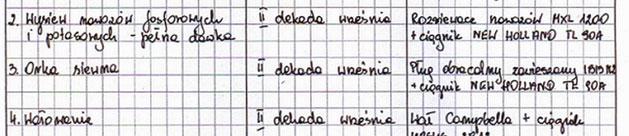 2. Wysiew nawozów fosforowych II dekada września Rozsiewacz nawozów MXL 1200
i potasowych - pełna dawka + ciągnik NEW HOLLAND TL 90A
3. Orka siewna II dekada września Pług obracalny zawieszany
+ ciągnik NEW HOLLAND TL 90A
4. Wałowanie II dekada września Wał Campbella + ciągnik